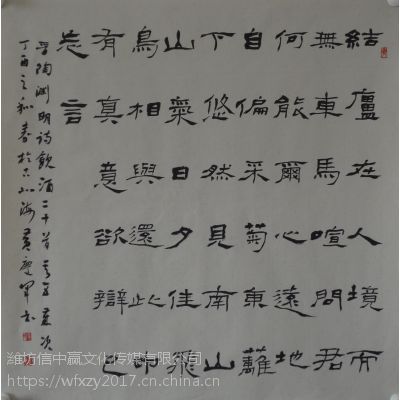 結廬在人境而
無車馬喧問君
何能爾心遠地
自偏采菊東籬
下悠然見南山
山氣日夕佳飛
鳥相與還此中
有真意欲辯已
忘言
晉陶淵明詩飲酒二十首其五歲次
丁酉之初春於
潍坊信中赢文化传媒有限公司
https://wfxzy2017.cn.china.cn